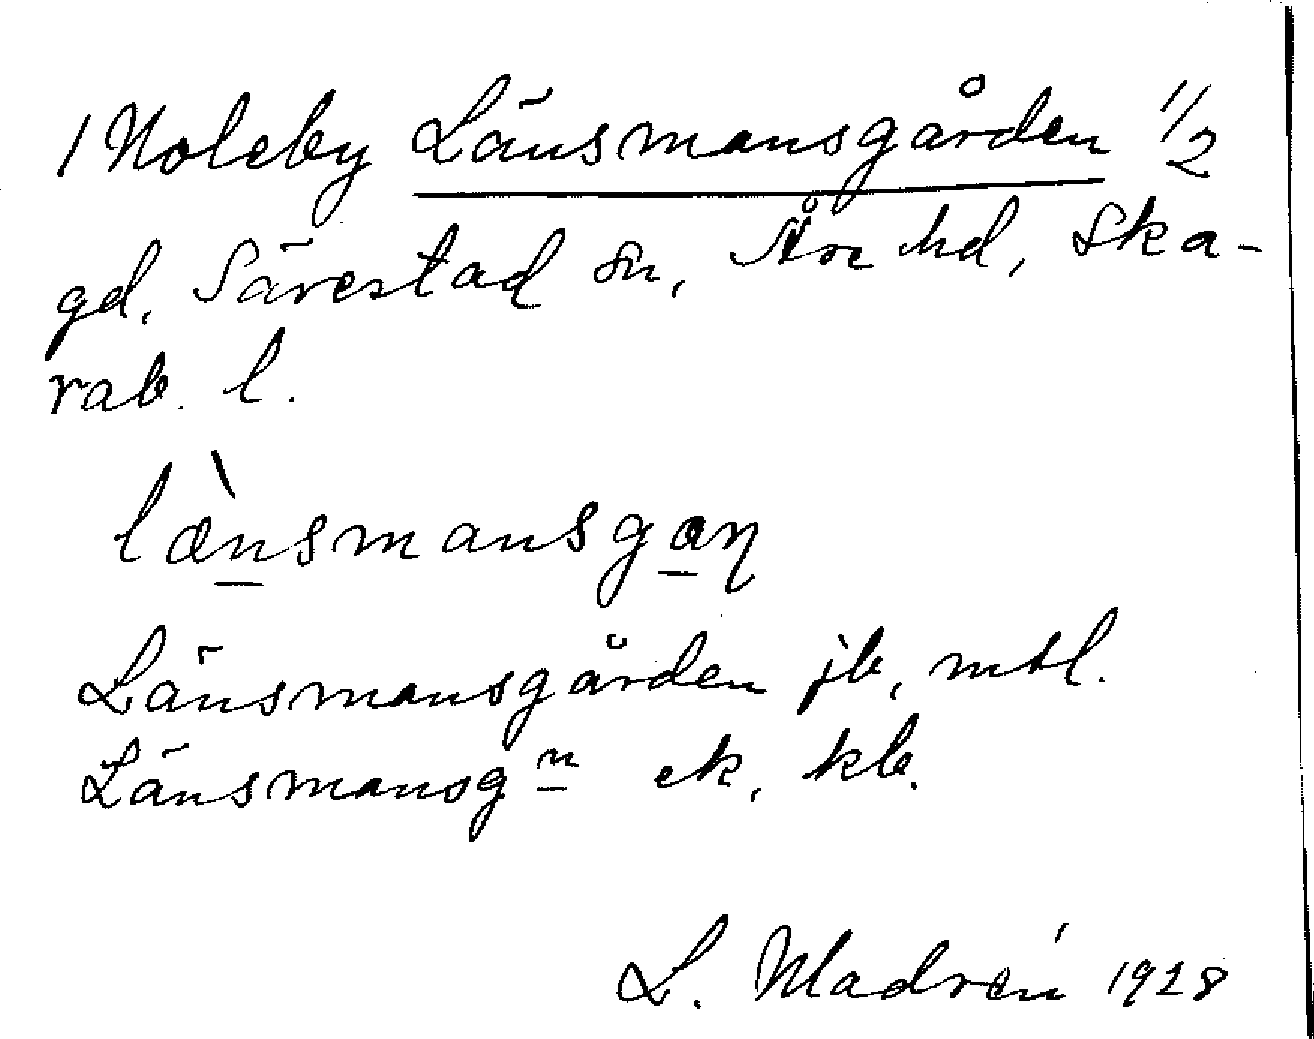 1 Noleby Länsmansgården 1/2
gd. Särestad sn, Åse hd, Ska-
rab. l.
lænsmansgaɳ
Länsmansgården jb, mtl.
Länsmansgn ek, kb.
L. Modrén 1928